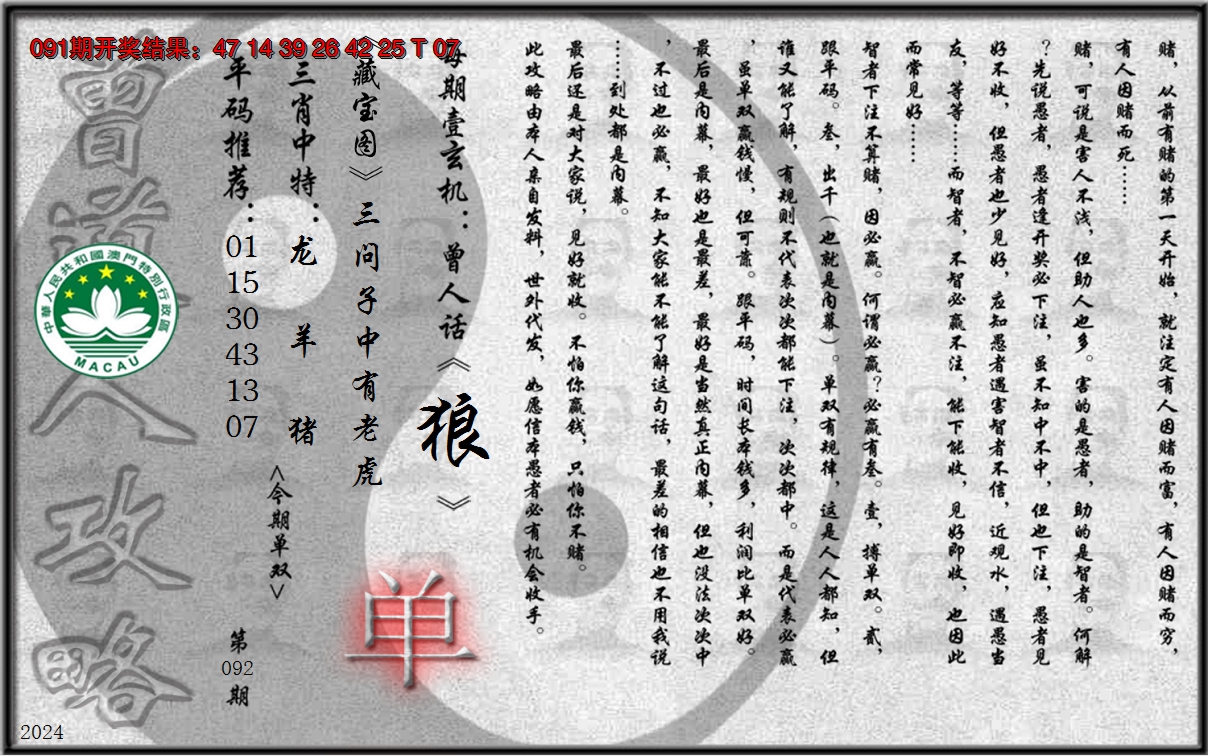 091期开奖结果：47 14 39 26 42 25 T 07
赌，从前有赌的第一天开始，就注定有人因赌而富，有人因赌而穷，
有人因赌而死……
赌，可说是害人不浅，但助人也多。害的是愚者，助的是智者。何解
？先说愚者，愚者逢开奖必下注，虽不知中不中，但也下注，愚者见
好不收，但愚者也少见好，应知愚者遇害智者不信，近观水，遇愚当
友，等等……而智者，不智必赢不注，能下能收，见好即收，也因此
而常见好……
智者下注不算赌，因必赢。何谓必赢？必赢有叁。壹，搏单双。贰，
跟平码。叁，出千（也就是内幕）。单双有规律，这是人人都知，但
谁又能了解，有规则不代表次次都能下注，次次都中。而是代表必赢
，虽单双赢钱慢，但可靠。跟平码，时间长本钱多，利润比单双好。
最后是内幕，最好也是最差，最好是当然真正内幕，但也没法次次中
，不过也必赢，不知大家能不能了解这句话，最差的相信也不用我说
……到处都是内幕。
最后还是对大家说，见好就收。不怕你赢钱，只怕你不赌。
此攻略由本人亲自发料，世外代发，如愿信本愚者必有机会收手。
每期壹玄机：曾人话《狼》
《藏宝图》三问子中有老虎
单
三肖中特：龙 羊 猪
<今期单双>
平码推荐：
01
15
30
43
13
07
第
092
期
曾道人攻略
中華人民共和國澳門特別行政區
MACAU
2024